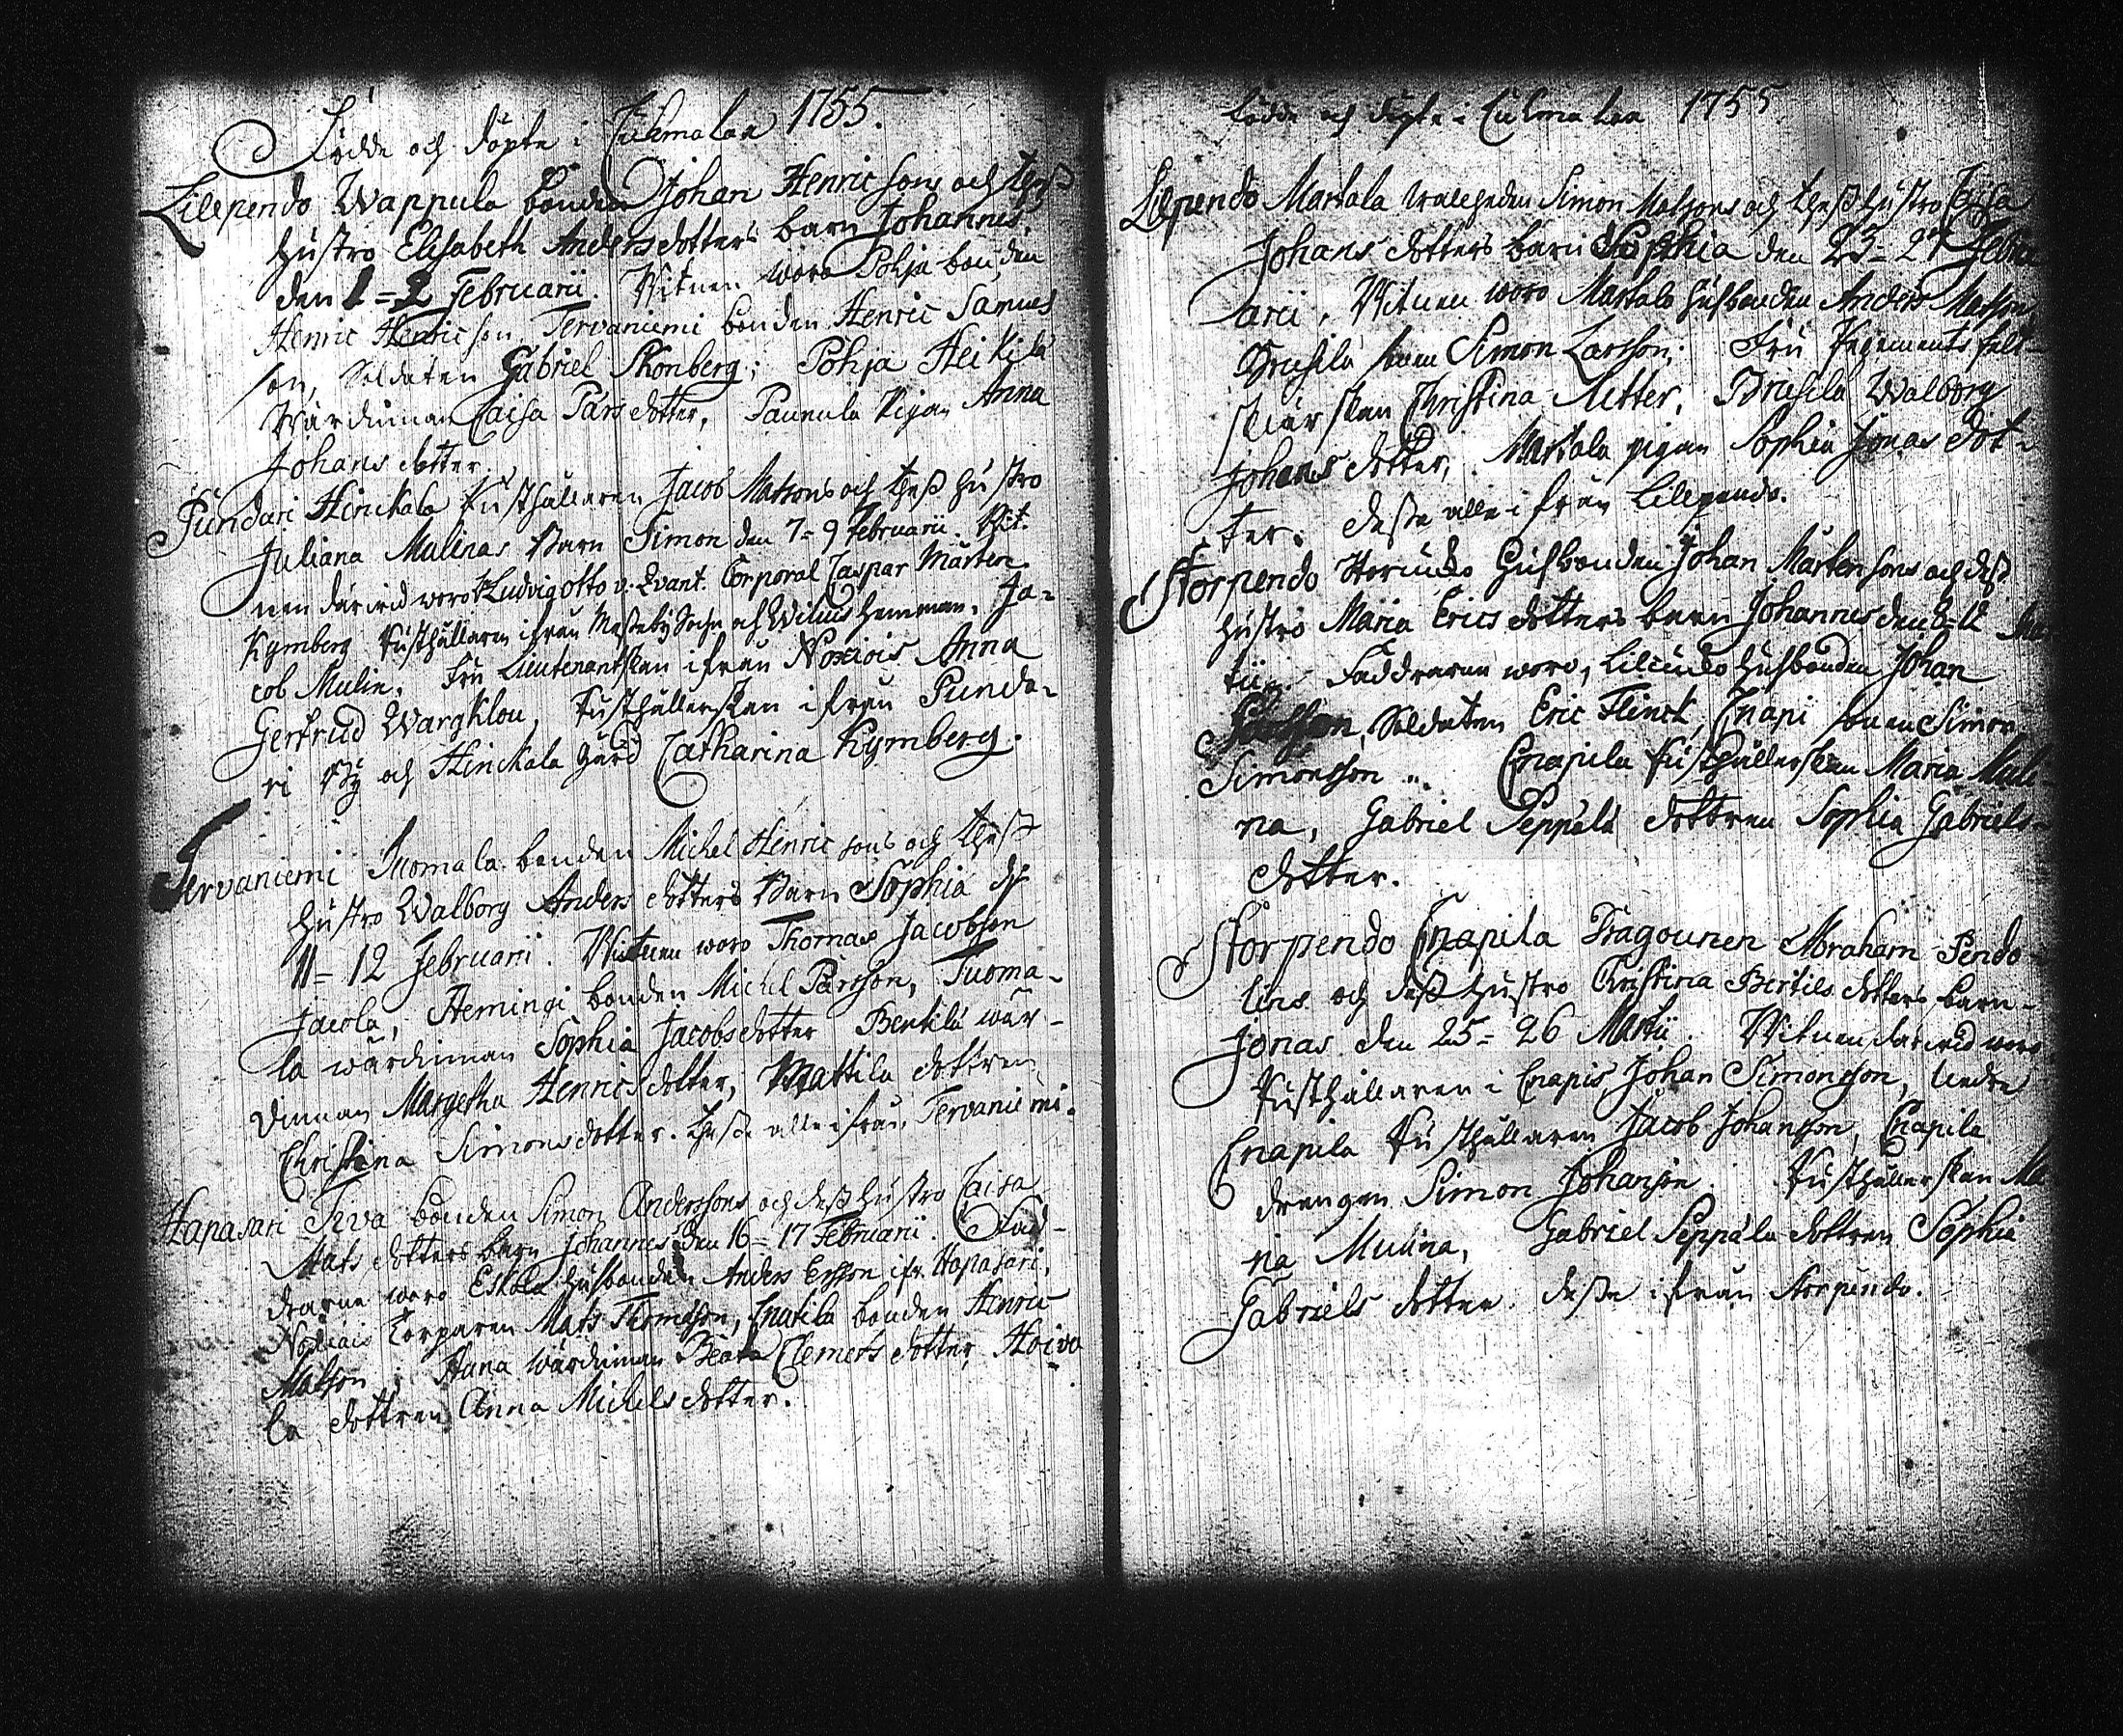 Födde och döpte i Culmalax 1755.
Lilependo Wappula bonden Johan Henricsons och theß
hustro Elisabeth Andersdotters barn Johannes
den 1=2 Februarii. Witnen woro Pohja bonden
Henric Henricson Tervaniemi bonden Henric Samuels
son, Soldaten Gabriel Skonberg; Pohja Heikilä
Wärdinnan Caisa Pärsdotter, Paunula Pigan Anna
Johansdotter.
Pundari Hinckala Rusthållaren Jacob Matsons och theß hustro
Juliana Mulinas Barn Simon den 7=9 Februarii. Wit-
nen därvid woro H Ludvig Otto v. Qvant. Corporal Caspar Mårten
Kymberg Rusthållaren ifrån Sochn och hemman, Ja-
cob Mulin. Fru Lieutenantskan ifrån Noxiois Anna
Gertrud Wargklou, Rusthållerskan ifrån Punda-
ri By och Hinckala Gård Catharina Kymberg.
Tervaniemi Tuomala bonden Michel Henricsons och theß
hustro Walborg Andersdotters Barn Sophia d.
11=12 Februarii. Witnen woro Thomas Jacobson
Jacola, Hemingi bonden Michel Pärsson, Tuoma-
la wärdinnan Sophia Jacobsdotter Bentilä wär-
dinnan Margetha Henricsdotter, Mattila dottren
Christina Simonsdotter. theße alle ifrån Tervaniemi.
Hapasari Teva bonden Simon Anderssons och deß hustro Caisa
Matsdotters barn Johannes den 16=17 Februarii. Fad-
drarne woro Eskola husbonden Anders Ersson ifr. Hapasari,
Noxiais Torparen Mats Thomasson, Knatila bonden Henric
Matson i Hana wärdinnan Beata Clemetsdotter, Hoiva
la dottren Anna Michelsdotter.
Födde och döpte i Culmalax 1755
Lilpendo Markala Simon Matsons och theß hustro Caisa
Johansdotters barn Sophia den 23=24 Febru
arii. Witnen woro Markala husbonden Anders Matsson,
Brusila Simon Larsson; Fru Regements fält-
skiärskan Christina Ritter, Brusila Walborg
Johansdotter, Markala pigan Sophia Jonasdot-
ter. deße alle ifrån Lilependo.
Storpendo husbonden Johan Mårtensons och deß
hustro Maria Ericsdotters barn Johannes den 8=12 Mar
tii. Faddrarne woro, husbonden Johan
Soldaten Eric Flinck, Cnapi sonen Simon
Simonsson. Cnapila Rusthållerskan Maria Muli-
na, Gabriel Seppälä dottren Sophia Gabriels-
dotter.
Storpendo Cnapila Dragounen Abraham Pendo-
lins och deß hustro Christina Bertilsdotters barn
Jonas den 25=26 Martii. Witnen därvid woro
Rusthållaren i Cnapis Johan Simonsson,
Cnapila Rusthållaren Jacob Johansson, Cnapila
drengen Simon Johanson. Rusthållerskan Ma
ria Mulina, Gabriel Seppäla dottren Sophia
Gabrielsdotter. deße ifrån Storpendo.